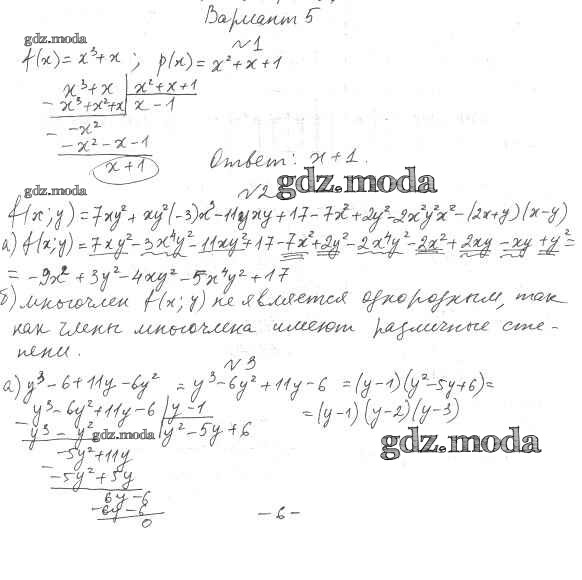 Вариант 5
gdz.moda
№1
f(x) = x³+x ; p(x) = x²+x+1
x³+x | x²+x+1
- x³+x²+x | x-1
- -x²
-x²-x-1
x+1
Ответ: x+1.
gdz.moda
№2 gdz.moda
f(x;y) = 7xy²+xy²(-3)x³-11yxy+17-7x²+2y²-2x²y²x²-(2x+y)(x-y)
а) f(x;y) = 7xy²-3x⁴y²-11xy²+17-7x²+2y²-2x⁴y²-2x²+2xy-xy+y²=
= -9x²+3y²-4xy²-5x⁴y²+17
б) многочлен f(x;y) не является однородным, так
как члены многочлена имеют различные сте-
пени.
№3
а) y³-6+11y-6y² = y³-6y²+11y-6 = (y-1)(y²-5y+6)=
= (y-1)(y-2)(y-3)
- y³-6y²+11y-6 | y-1
y³-y² gdz.moda | y²-5y+6
gdz.moda
- -5y²+11y
-5y²+5y
6y-6
- 6y-6
0
-6-